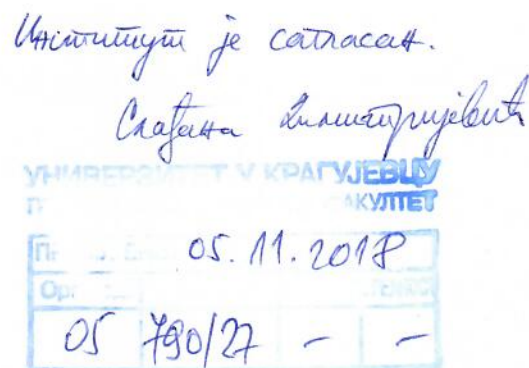 Институт је сагласан.
Слађана Димитријевић
УНИВЕРЗИТЕТ У КРАГУЈЕВЦУ
ФАКУЛТЕТ
05.11.2018
05 790/27 - -